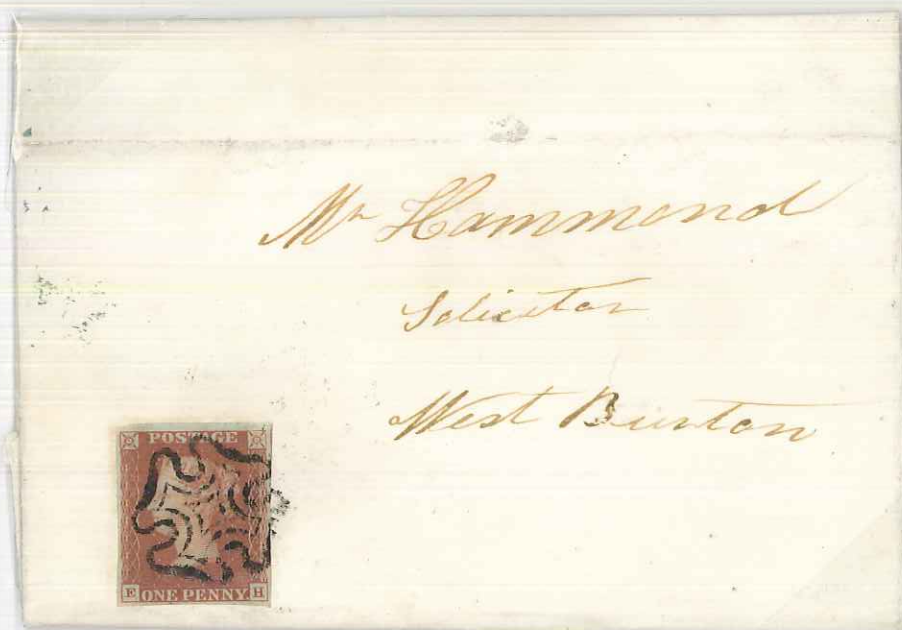 Mr Hammond
Solicitor
West Burton
POSTAGE
E ONE PENNY H